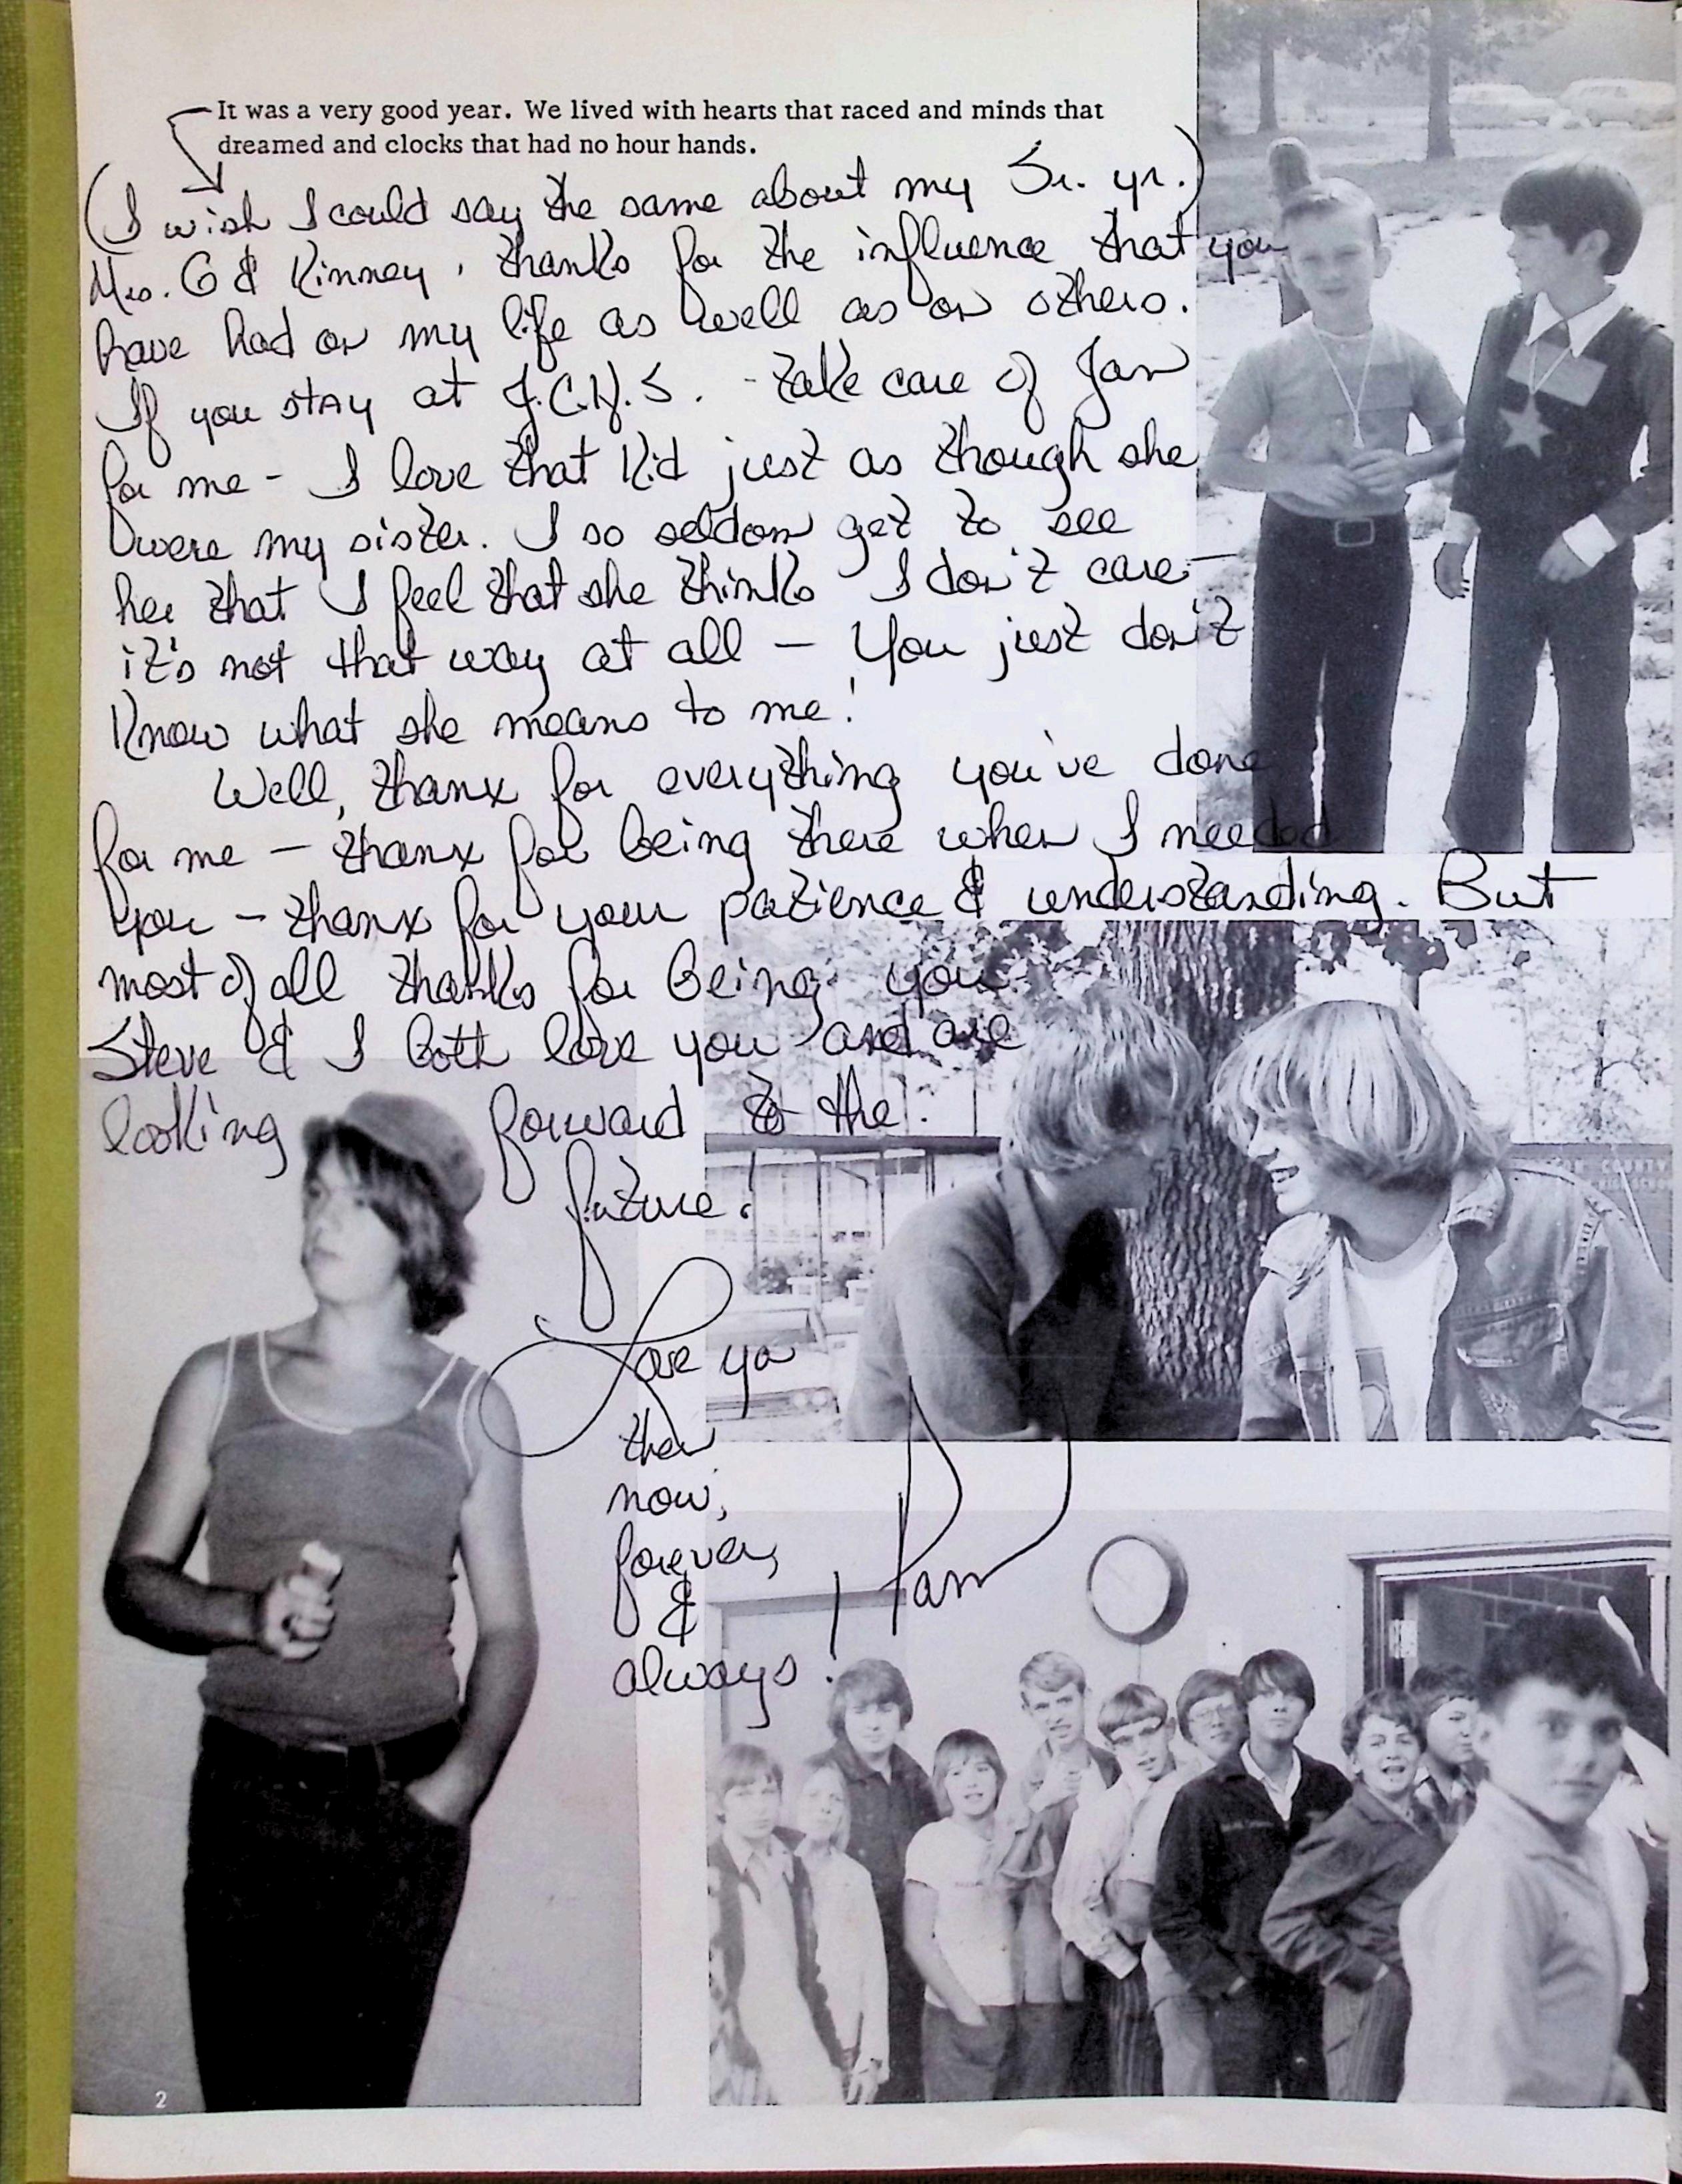 It was a very good year. We lived with hearts that raced and minds that
dreamed and clocks that had no hour hands.
(I wish I could say the same about my Sr. yr.)
Mrs. G & Kinney, thanks for the influence that you
have had on my life as well as on others.
If you stay at J.C.H.S. - take care of Jan
for me - I love that kid just as though she
were my sister. I so seldom get to see
her that I feel that she thinks I don't care -
it's not that way at all - You just don't
know what she means to me!
Well, thanx for everything you've done
for me - thanx for being there when I needed
you - thanx for your patience & understanding. But
most of all thanks for being you
Steve & I both love you and are
looking forward to the
future!
COUNTY
Love ya
then
now,
forever,
&
always!
Pam
2